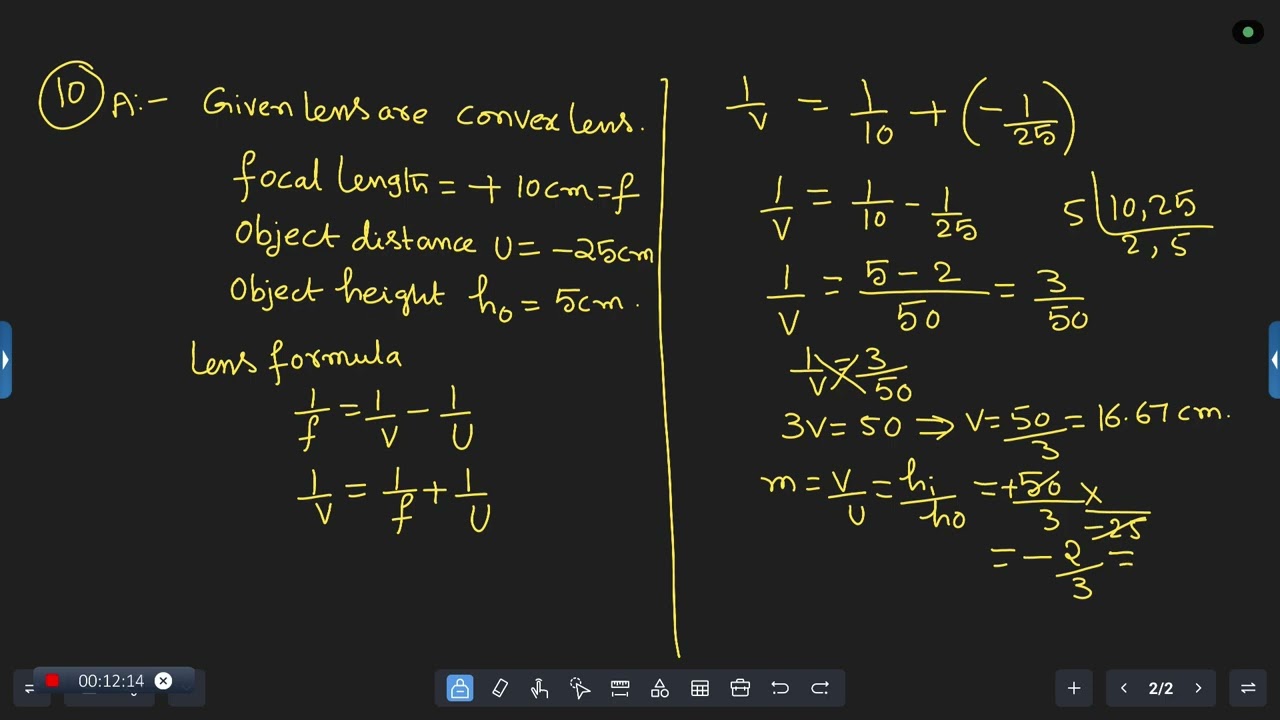 10 A:- Given lens are convex lens.
focal length = + 10cm = f
Object distance u = -25cm
Object height h₀ = 5cm.
Lens formula
1/f = 1/v - 1/u
1/v = 1/f + 1/u
1/v = 1/10 + (-1/25)
1/v = 1/10 - 1/25
5 | 10, 25
2, 5
1/v = 5-2/50 = 3/50
1/v = 3/50
3v = 50 ⇒ v = 50/3 = 16.67 cm.
m = v/u = hi/ho = +50/3 × /-25
= -2/3 =
00:12:14
2/2